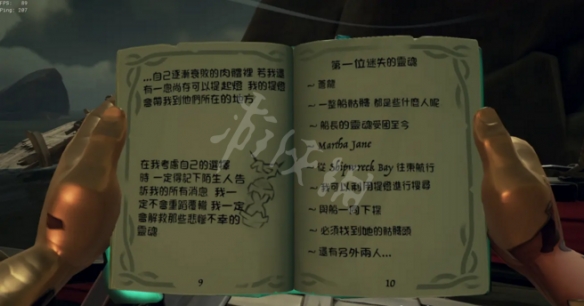 FPS: 89
Ping: 107
...自己逐漸衰敗的肉體裡 若我還
有一息尚存可以提起燈 我的提燈
會帶我到他們所在的地方
在我考慮自己的選擇
時 一定得記下陌生人告
訴我的所有消息 我一
定不會重蹈覆轍 我一定
會解救那些悲慘不幸的
靈魂
9
第一位迷失的靈魂
~ 一整船骷髏 都是些什麼人呢
~ 船長的靈魂受困至今
~ Martha Jane
~ 從 Shipwreck Bay 往東航行
~ 我可以利用提燈進行搜尋
~ 與船一同下探
~ 必須找到她的骷髏頭
~ 還有另外兩人...
10
游侠网